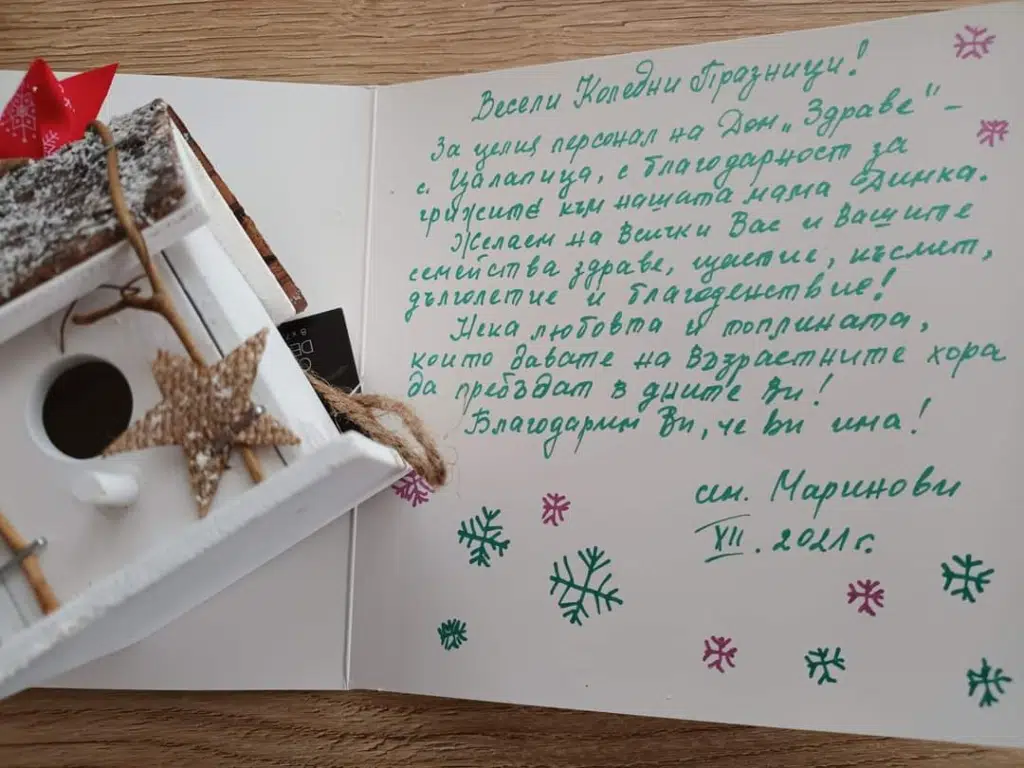 Весели Коледни Празници!
За целия персонал на Дом „Здраве“ –
с. Цалапица, с благодарност за
грижите към нашата мама Динка.
Желаем на всички Вас и Вашите
семейства здраве, щастие, късмет,
дълголетие и благоденствие!
Нека любовта и топлината,
които давате на възрастните хора
да пребъдат в дните Ви!
Благодарим Ви, че Ви има!
сем. Маринови
XII. 2021г.